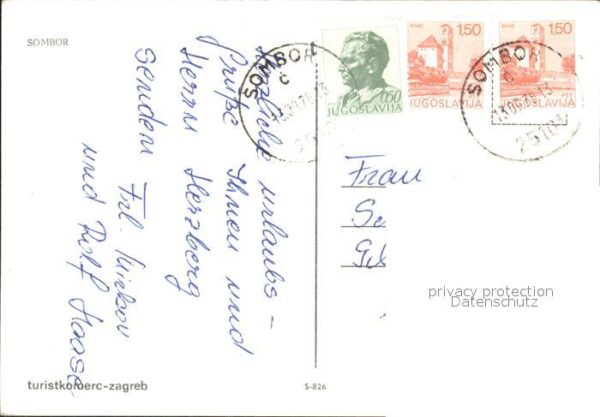 SOMBOR
Herzliche Urlaubs-
Grüße Ihnen und
Herrn Herzberg
Senden Frl.
und Rolf Haase
SOMBOR
č
SOMBOR
č
25101
0,60
JUGOSLAVIJA
BIHAĆ
1,50
JUGOSLAVIJA
BIHAĆ
1,50
JUGOSLAVIJA
Frau
Se
privacy protection
Datenschutz
turistkomerc-zagreb
S-826